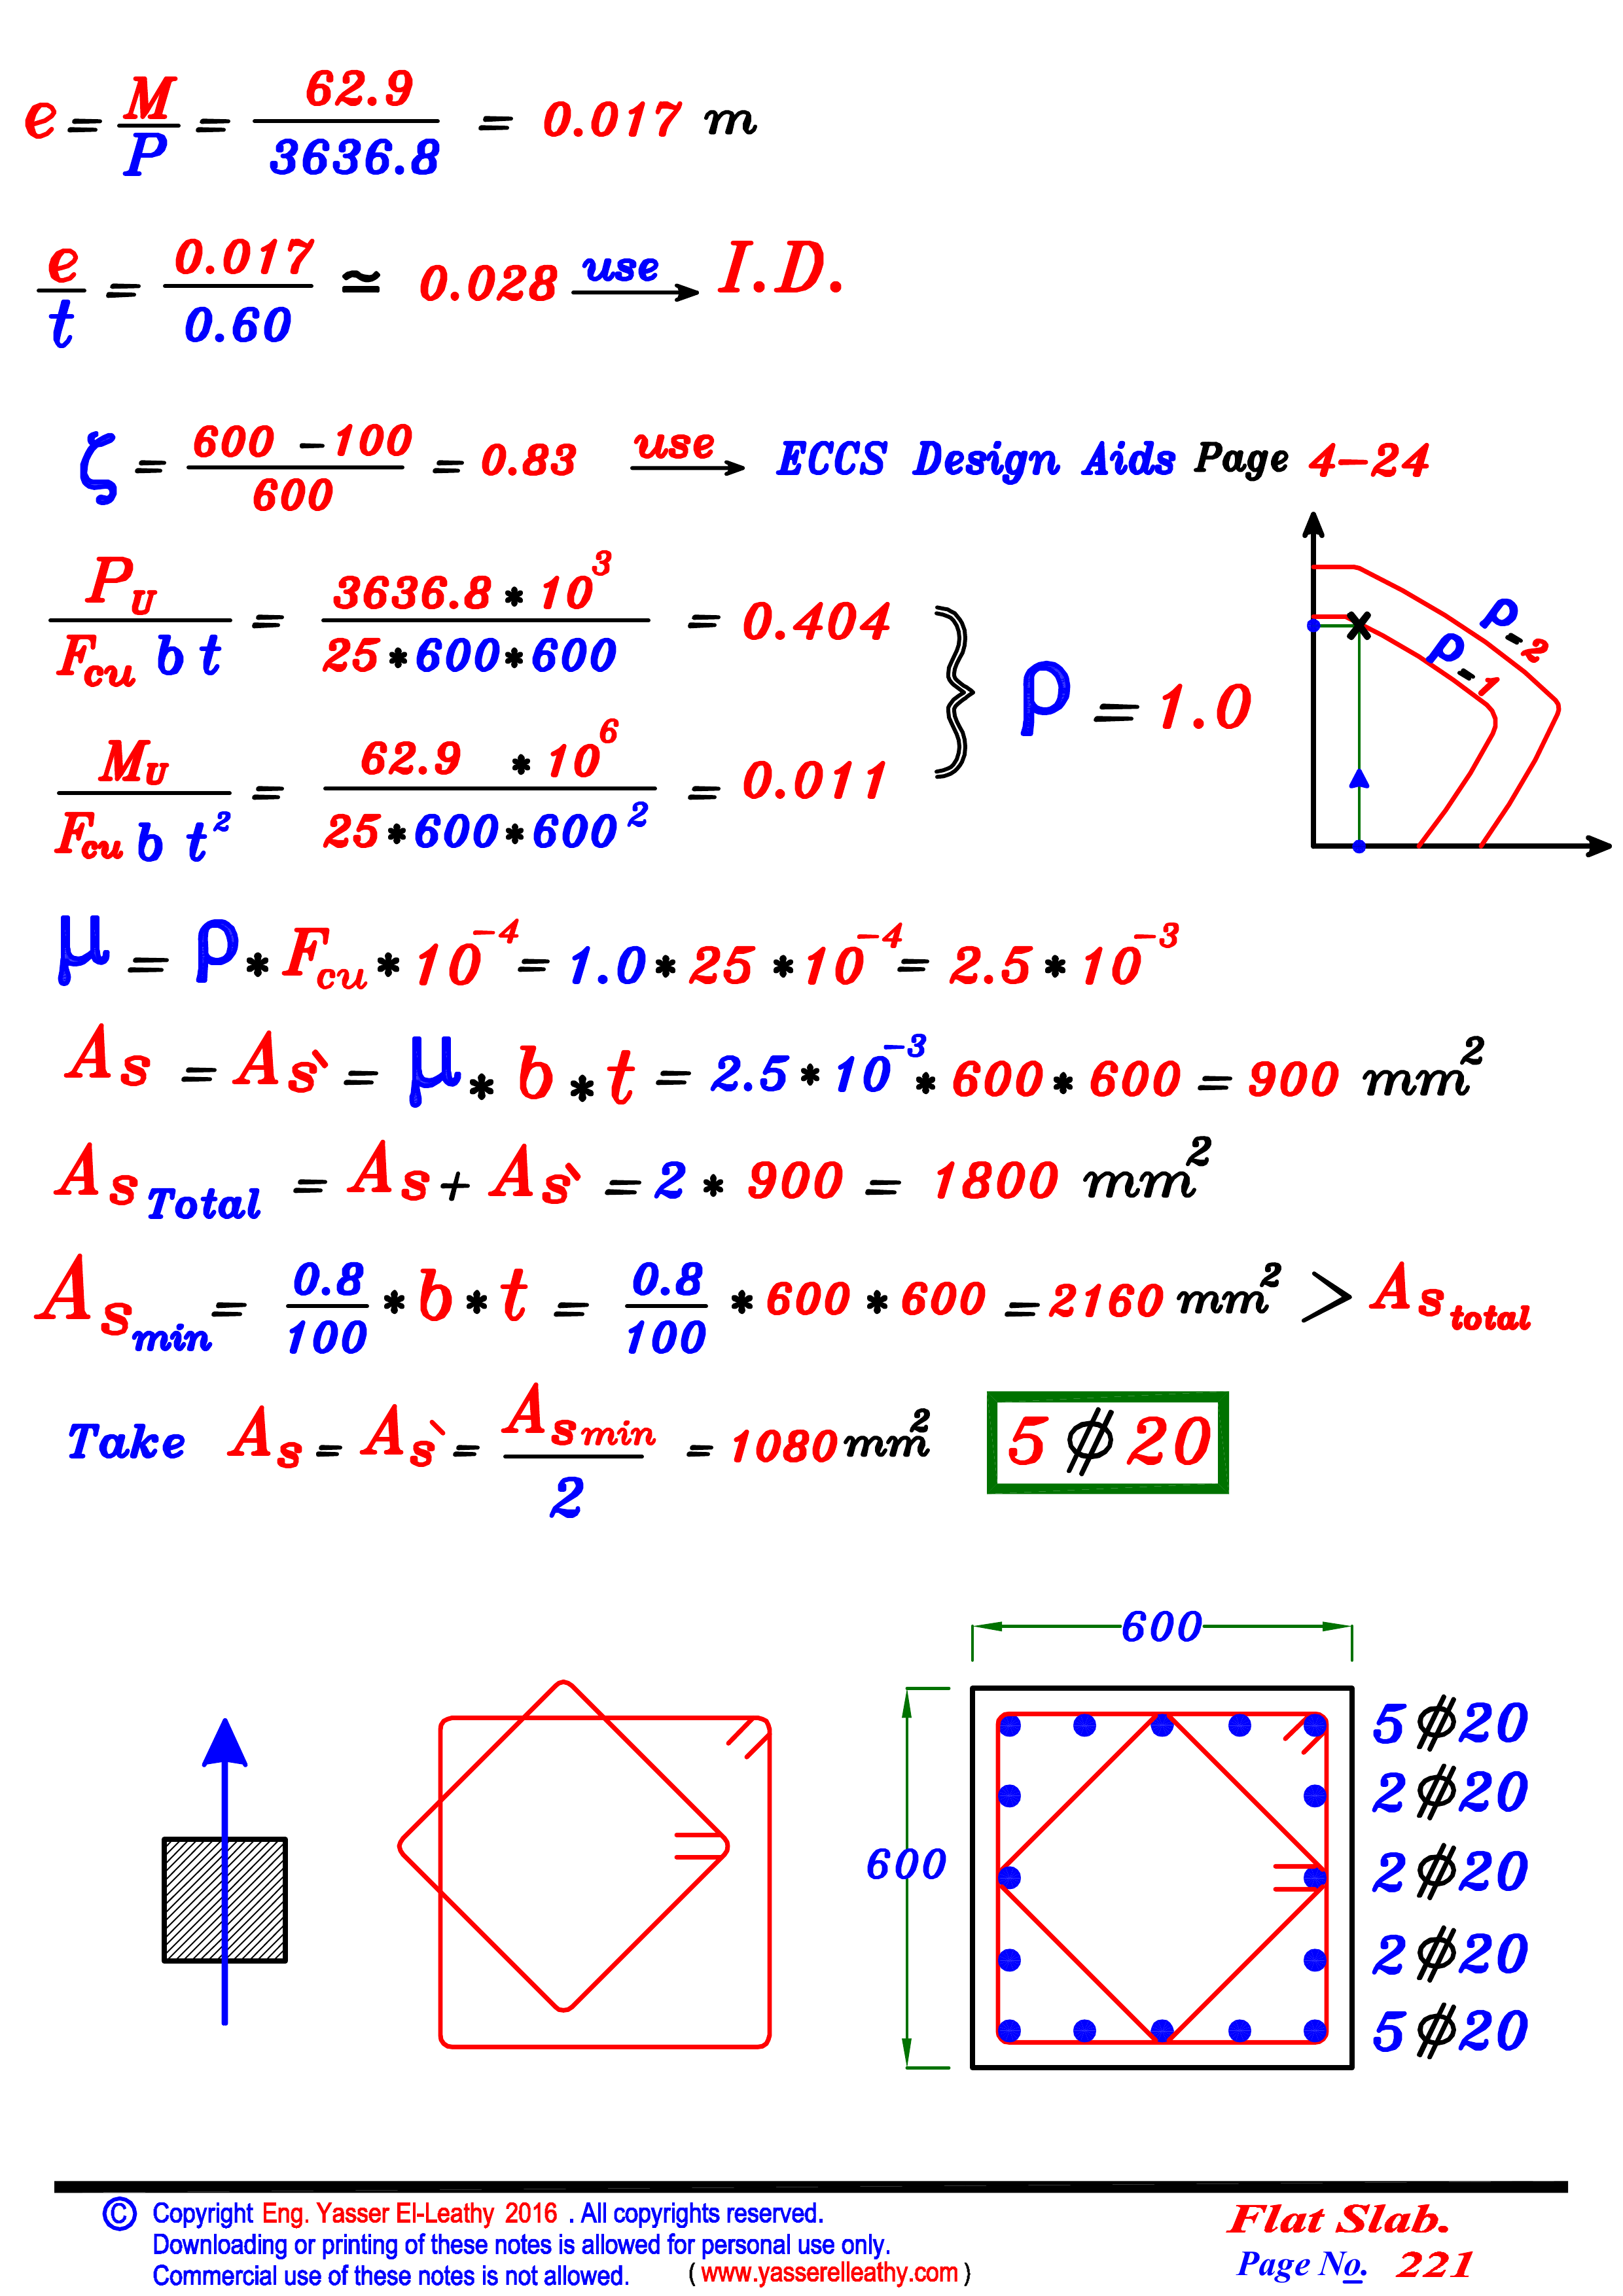 e = M/P = 62.9/3636.8 = 0.017 m
e/t = 0.017/0.60 ≃ 0.028 use → I.D.
ζ = 600 - 100/600 = 0.83 use → ECCS Design Aids Page 4-24
P_U/F_cu b t = 3636.8 * 10^3/25 * 600 * 600 = 0.404
M_U/F_cu b t^2 = 62.9 * 10^6/25 * 600 * 600^2 = 0.011
} ρ = 1.0
ρ_-2
ρ_-1
μ = ρ * F_cu * 10^-4 = 1.0 * 25 * 10^-4 = 2.5 * 10^-3
As = As` = μ * b * t = 2.5 * 10^-3 * 600 * 600 = 900 mm^2
As Total = As + As` = 2 * 900 = 1800 mm^2
As min = 0.8/100 * b * t = 0.8/100 * 600 * 600 = 2160 mm^2 > As total
Take As = As` = As min/2 = 1080 mm^2 5 ϕ 20
600
600
5 ϕ 20
2 ϕ 20
2 ϕ 20
2 ϕ 20
5 ϕ 20
© Copyright Eng. Yasser El-Leathy 2016 . All copyrights reserved.
Downloading or printing of these notes is allowed for personal use only.
Commercial use of these notes is not allowed. ( www.yasserelleathy.com )
Flat Slab.
Page No. 221